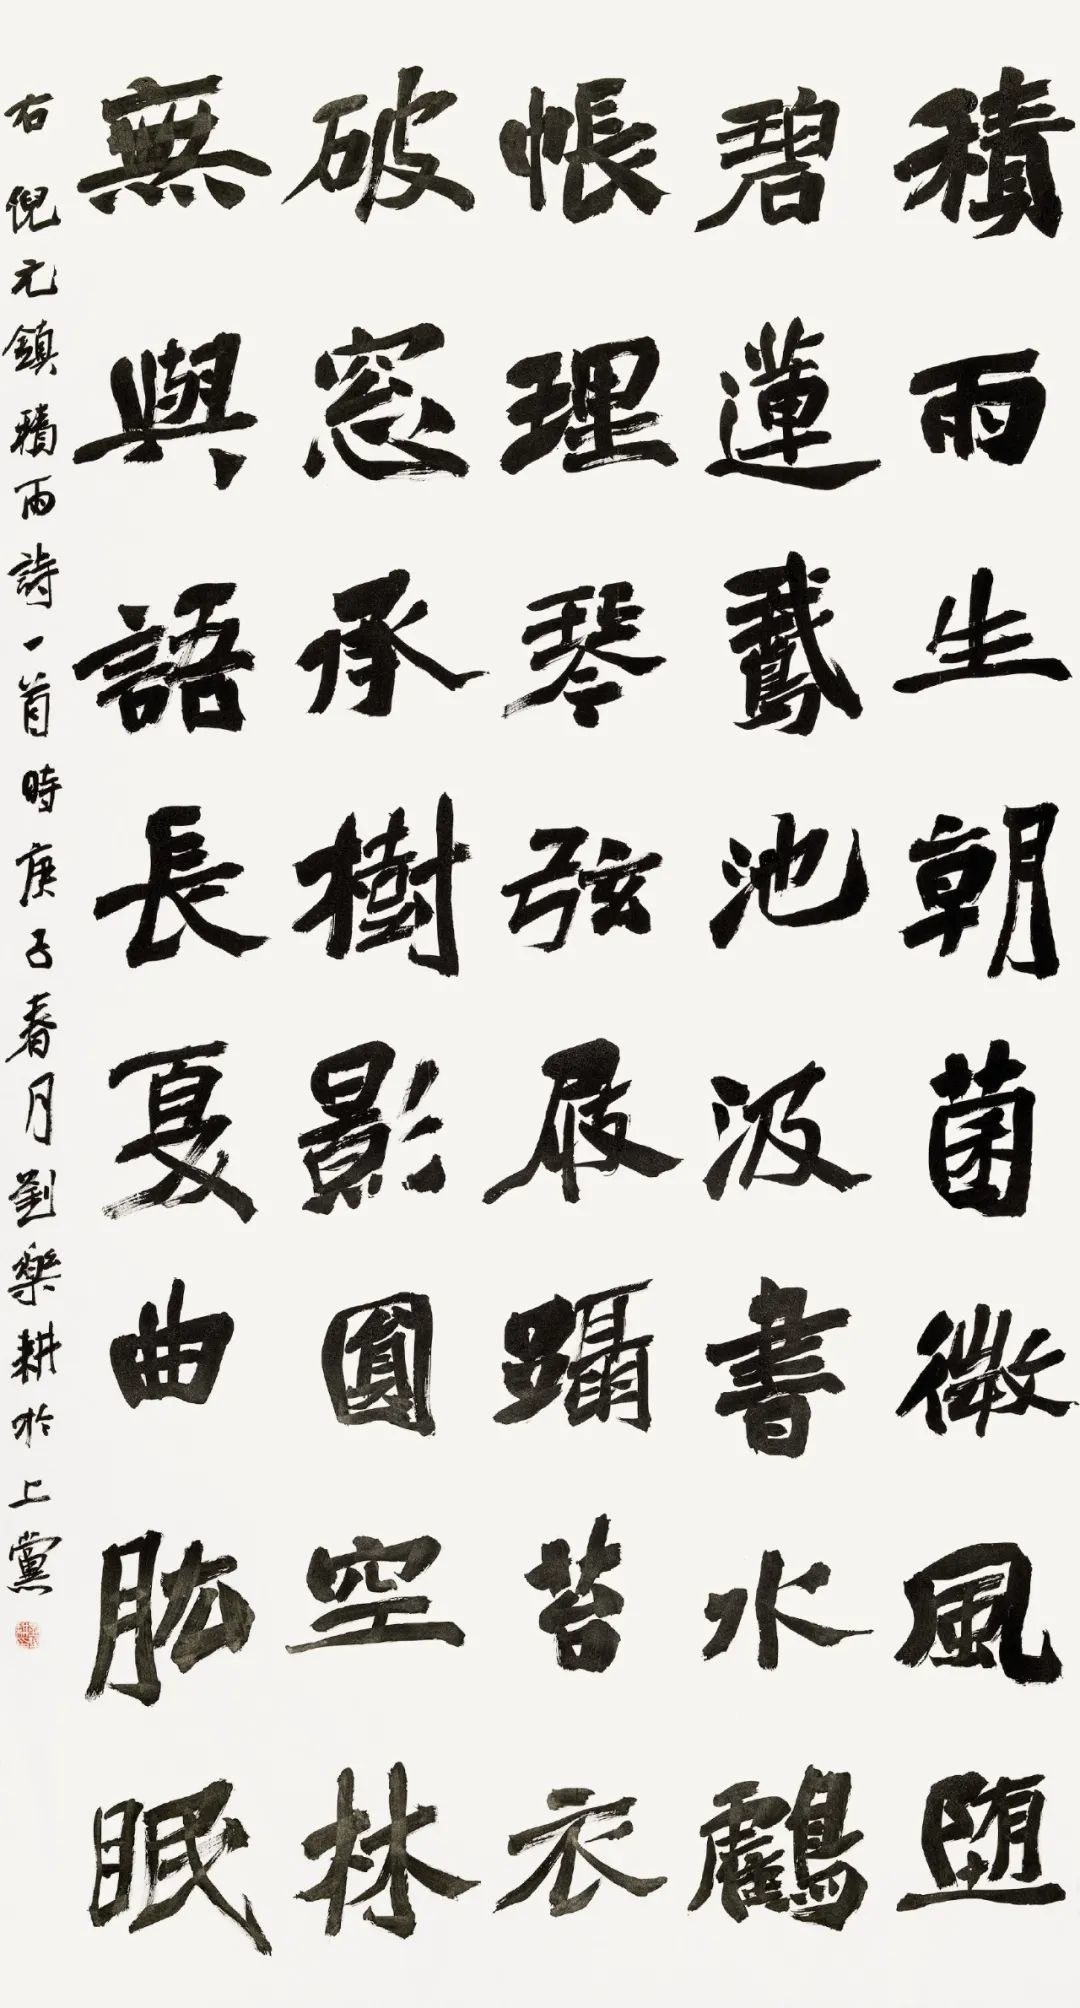 積雨生朝菌微風堕
碧蓮鵞池汲書水鸖
帳理琴弦屐躡苔衣
破窓承樹影圓空林
無與語長夏曲肱眠
右倪元鎮積雨詩一首時庚子春月劉樂耕於上黨